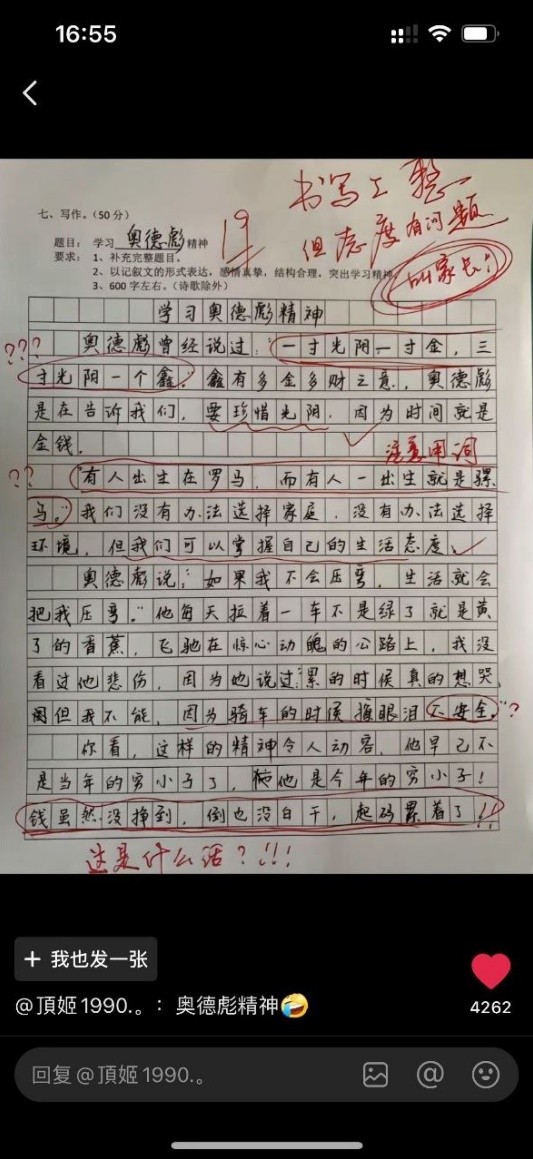 16:55
书写工整
但态度有问题
叫家长!
19
七、写作。(50分)
题目: 学习 奥德彪 精神
要求: 1、补充完整题目。
2、以记叙文的形式表达,感情真挚,结构合理,突出学习精神。
3、600字左右。(诗歌除外)
学习奥德彪精神
???
奥德彪曾经说过:“一寸光阴一寸金,三
寸光阴一个鑫。”鑫有多金多财之意,奥德彪
是在告诉我们,要珍惜光阴,因为时间就是
金钱。
注意用词
??
“有人出生在罗马,而有人一出生就是骡
马。”我们没有办法选择家庭,没有办法选择
环境,但我们可以掌握自己的生活态度。
奥德彪说:“如果我不会压弯,生活就会
把我压弯。”他每天拉着一车不是绿了就是黄
了的香蕉,飞驰在惊心动魄的公路上,我没
看过他悲伤,因为他说过:“累的时候真的想哭,
但我不能,因为骑车的时候擦眼泪不安全。”
?
你看,这样的精神令人动容,他早已不
是当年的穷小子了,他是今年的穷小子!
钱虽然没挣到,倒也没白干,起码累着了!!
这是什么话?!!!
+ 我也发一张
@頂姬1990.。:奥德彪精神🤣
4262
回复@頂姬1990.。